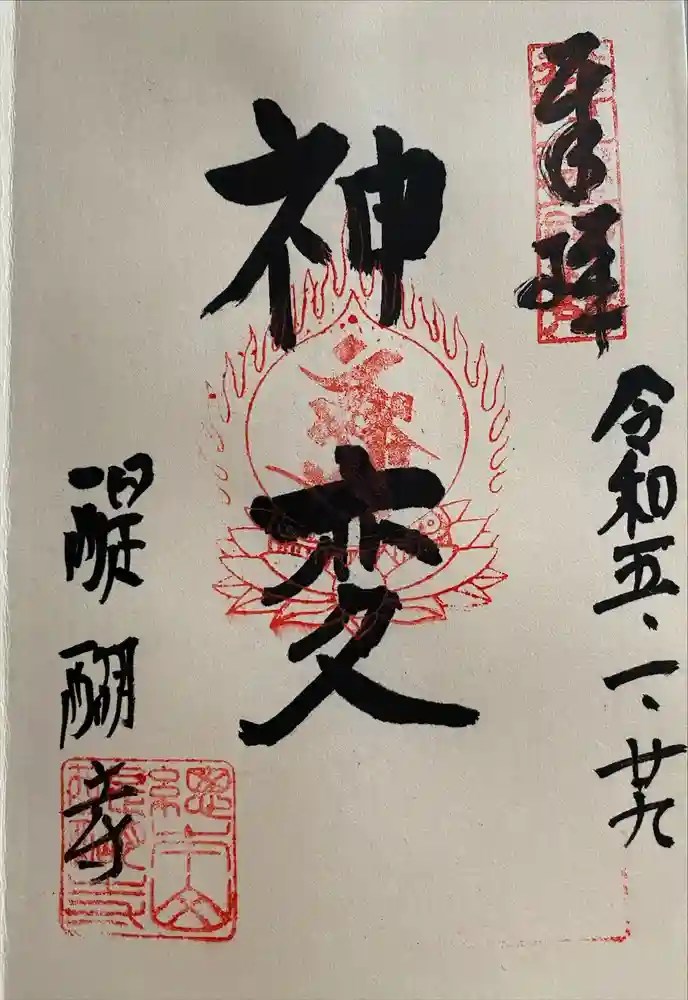 奉拝
令和五、一、廿九
神変
醍醐寺